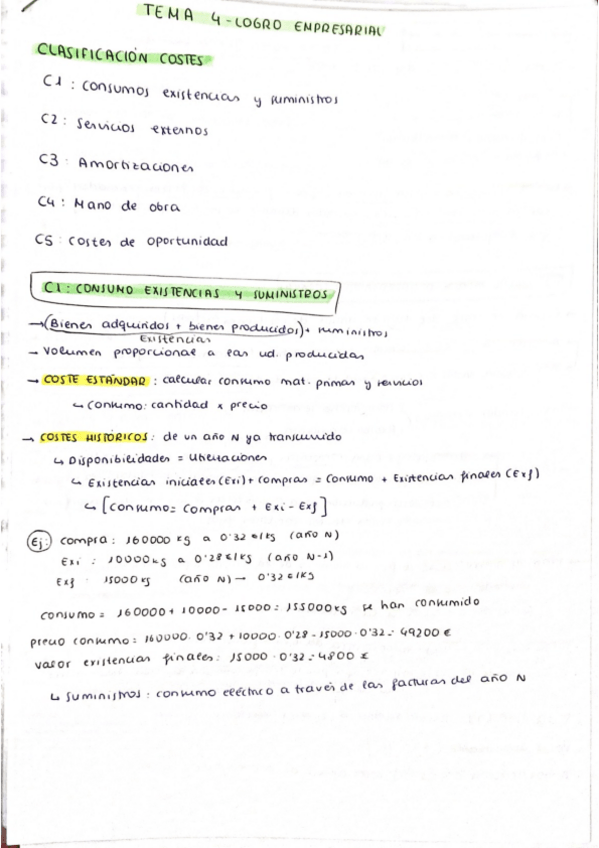 TEMA 4 - LOGRO EMPRESARIAL
CLASIFICACIÓN COSTES
C1 : Consumos existencias y suministros
C2 : Servicios externos
C3 : Amortizaciones
C4 : Mano de obra
C5 : Costes de oportunidad
C1 : CONSUMO EXISTENCIAS Y SUMINISTROS
→ (Bienes adquiridos + bienes producidos) + suministros
Existencias
→ Volumen proporcional a las ud. producidas
→ COSTE ESTÁNDAR : calcular consumo mat. primas y servicios
↳ Consumo: cantidad x precio
→ COSTES HISTÓRICOS : de un año N ya transcurrido
↳ Disponibilidades = Utilizaciones
↳ Existencias iniciales (Exi) + compras = Consumo + Existencias finales (Exf)
↳ [Consumo = Compras + Exi - Exf]
Ej: compra : 160000 kg a 0'32 €/kg (año N)
Exi : 10000 kg a 0'28 €/kg (año N-1)
Exf : 15000 kg (año N) → 0'32 €/kg
consumo = 160000 + 10000 - 15000 = 155000 kg se han consumido
precio consumo = 160000 · 0'32 + 10000 · 0'28 - 15000 · 0'32 = 49200 €
valor existencias finales : 15000 · 0'32 = 4800 €
↳ Suministros : consumo eléctrico a través de las facturas del año N